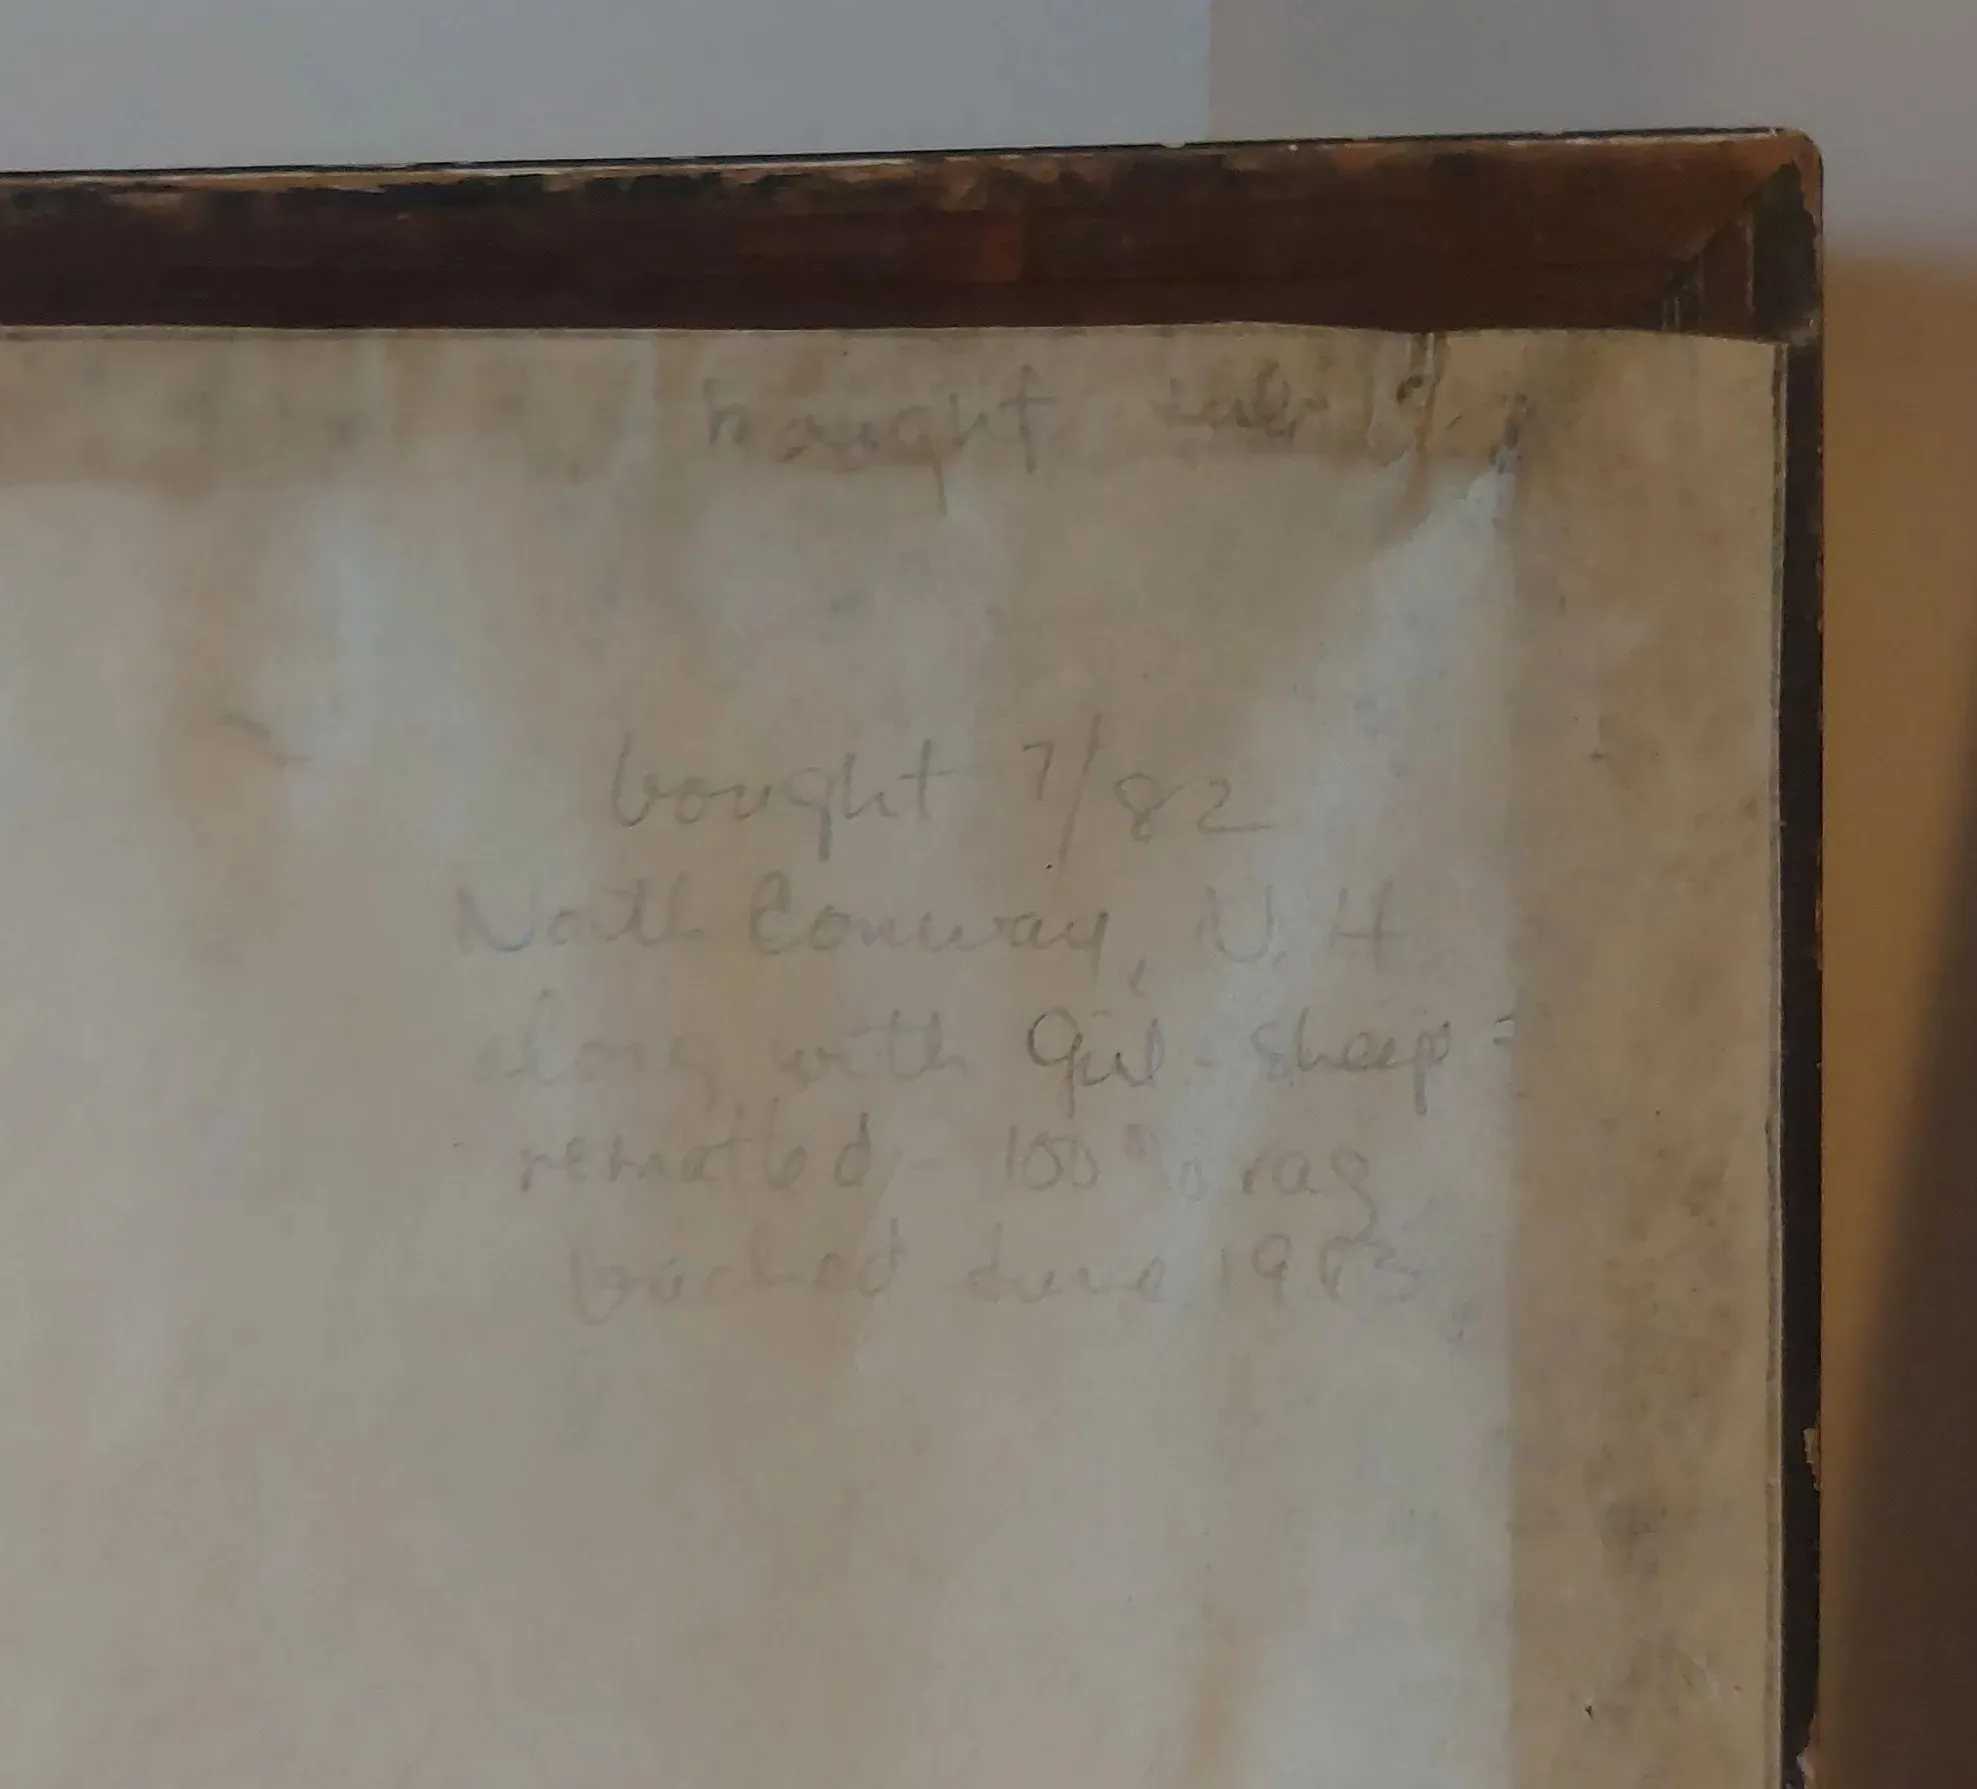 bought July 19
bought 7/82
North Conway, N.H
along with Girl-Sheep -
rematted - 100% rag
backed June 1983